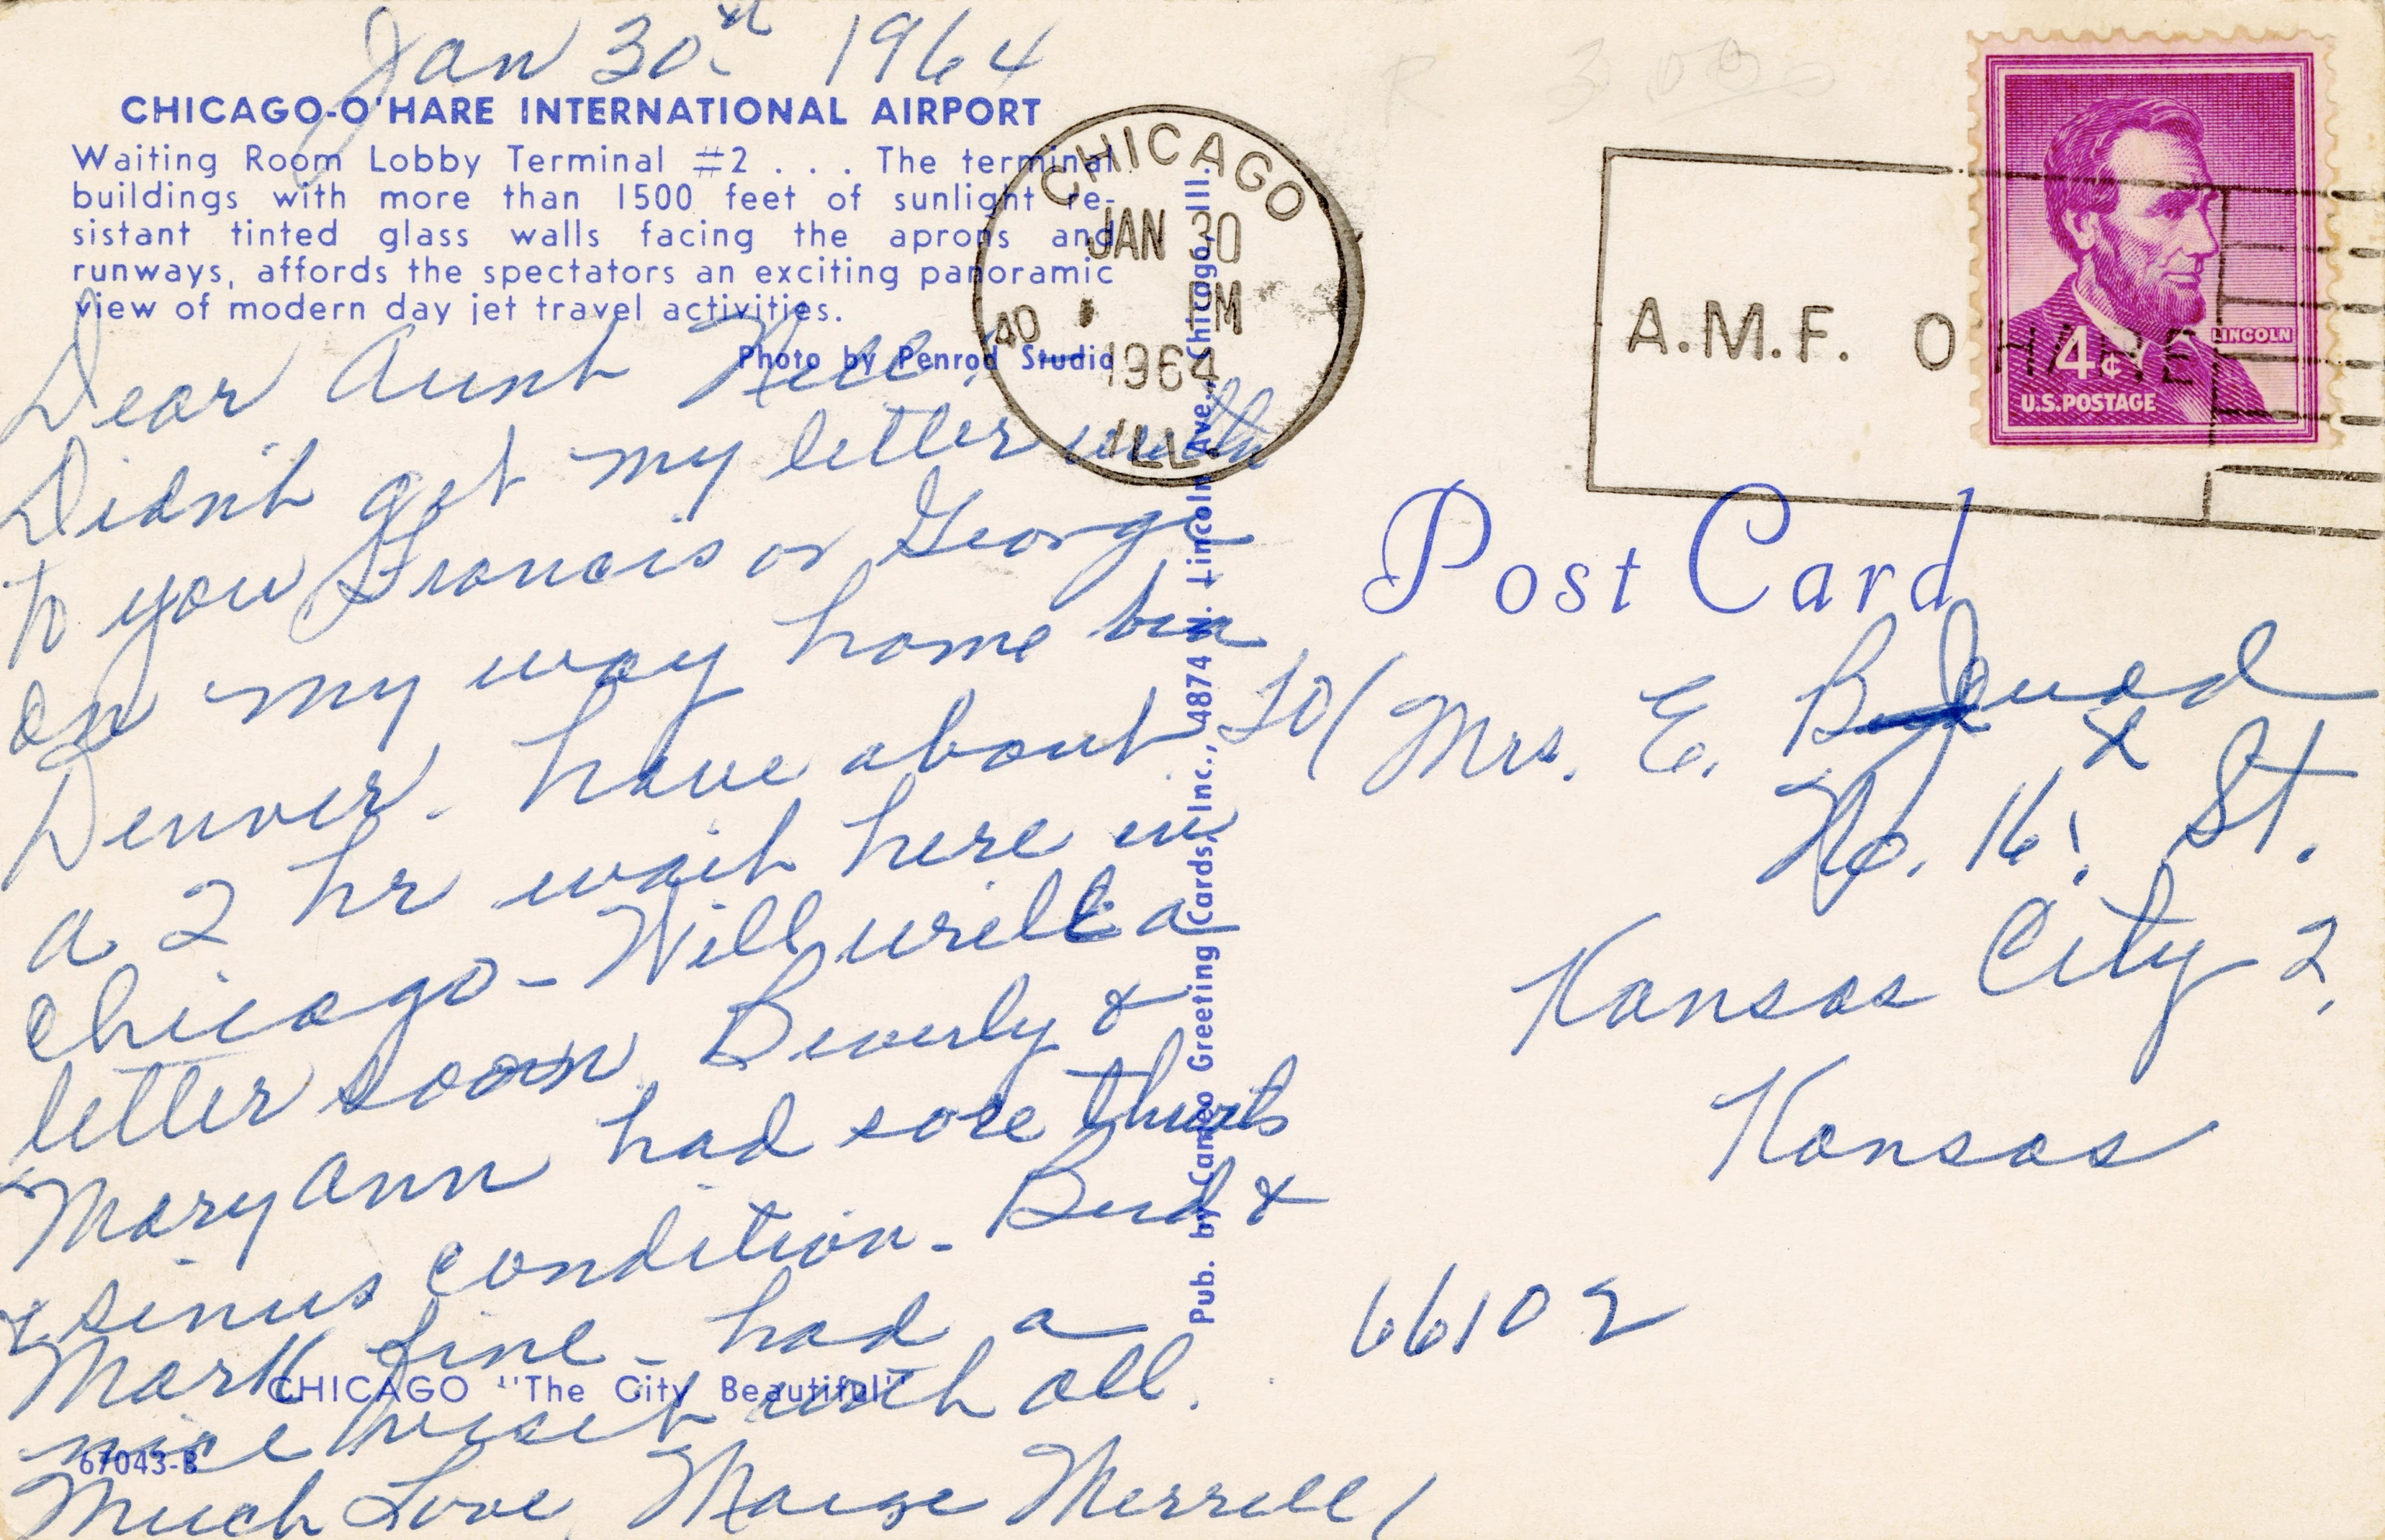 Jan 30st 1964
CHICAGO-O'HARE INTERNATIONAL AIRPORT
Waiting Room Lobby Terminal #2 . . . The terminal
buildings with more than 1500 feet of sunlight re-
sistant tinted glass walls facing the aprons and
runways, affords the spectators an exciting panoramic
view of modern day jet travel activities.
Photo by Penrod Studio
Dear Aunt Nell,
Didn't get my letter
to you Francis or George
on my way home
Denver. have about
a 2 hr wait here in
Chicago - Will write a
letter soon. Beverly &
Mary Ann had sore throats
& sinus condition - Bud &
Mark fine - had a
nice visit with all.
Much Love, Merrell
CHICAGO "The City Beautiful"
67043-B
Pub. by Cameo Greeting Cards, Inc., 4874 N. Lincoln Ave., Chicago, Ill.
CHICAGO
JAN 30
PM
40
1964
ILL.
A.M.F. O HARE
LINCOLN
4¢
U.S.POSTAGE
Post Card
Mrs. E.
No. 16 St.
Kansas City 2,
Kansas
66102